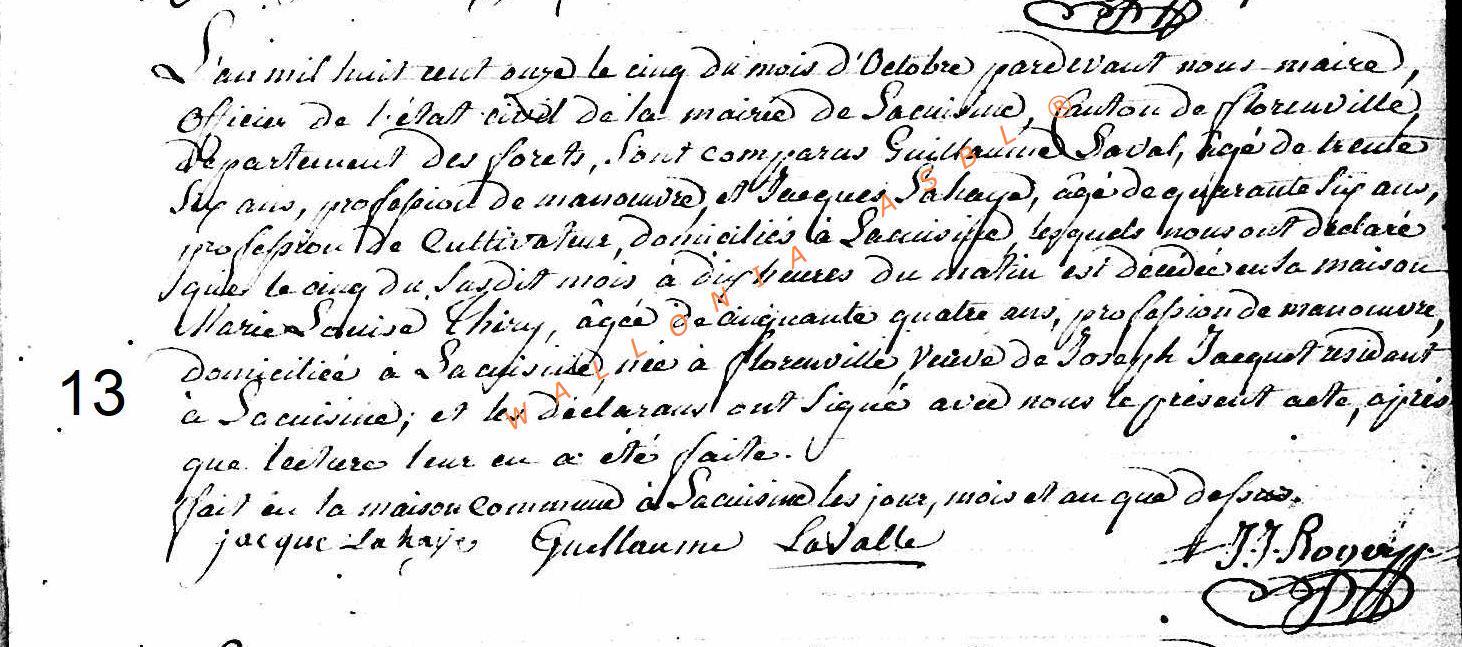 L'an mil huit cent onze le cinq du mois d'Octobre pardevant nous maire,
Officier de l'état civil de la mairie de Lacuisine, Canton de florenville,
département des forets, sont comparus Guillaume Laval, âgé de trente
six ans, profession de manouvre, et Jacques Lahaye, âgé de quarante six ans,
profession de Cultivateur, domiciliés à Lacuisine, lesquels nous ont déclaré
que le cinq du susdit mois à dix heures du matin est décédée en sa maison
Marie Louise Thiry, âgée de cinquante quatre ans, profession de manouvre,
13
domiciliée à Lacuisine, née à florenville, Veuve de Joseph Jacquet résidant
à Lacuisine; et les déclarans ont signé avec nous le présent acte, après
que lecture leur en a été faite.
fait en la maison commune à Lacuisine les jour, mois et an que dessus.
jacque Lahaye Guellaume LaValle J.J. Roger
WALLONIA ASBL ®